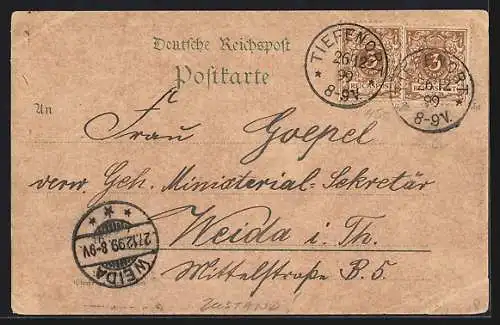 Deutsche Reichspost
Postkarte
TIEFENORT
26/12
99
8-9V.
TIEFENORT
26/12
99
8-9V.
3
3
An
Frau Goepel
verw. Geh. Ministerial-Sekretär
Weida i. Th.
Mittelstraße B. 5
WEIDA
27.12.99.8-9V.
ZUSTAND